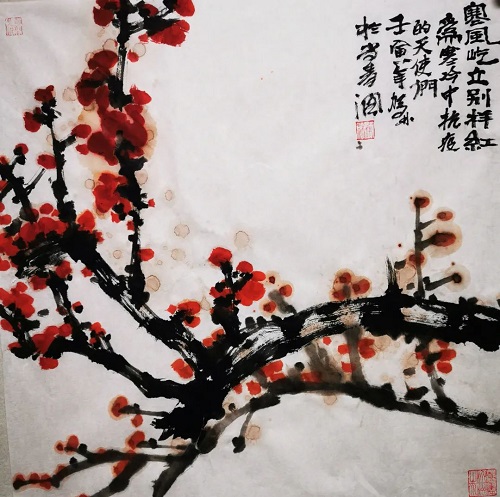 寒風屹立别样紅
為寒冷中抗疫
的天使們
壬寅年
於